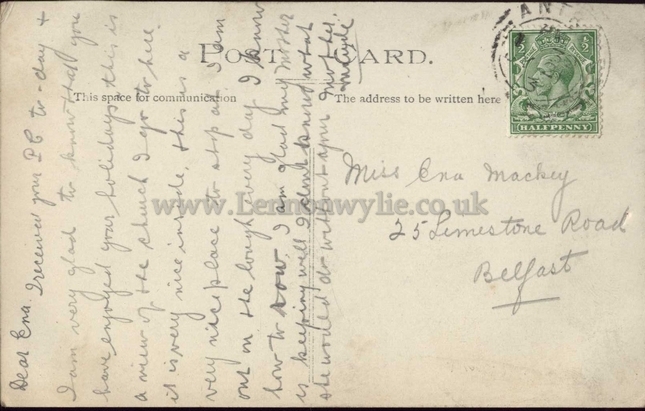 POST CARD.
This space for communication
The address to be written here
ANT
HALFPENNY
Dear Ena. I received your PC to-day &
I am very glad to know that you
have enjoyed your holidays this is
a view of the church I go to here.
it is very nice inside, this is a
very nice place to stop at I am
out on the lough every day I know
how to row. I am glad my mother
is keeping well I dont know what
she would do without your mother.
Miss Ena Mackey
25 Limestone Road
Belfast
www.Lennonwylie.co.uk